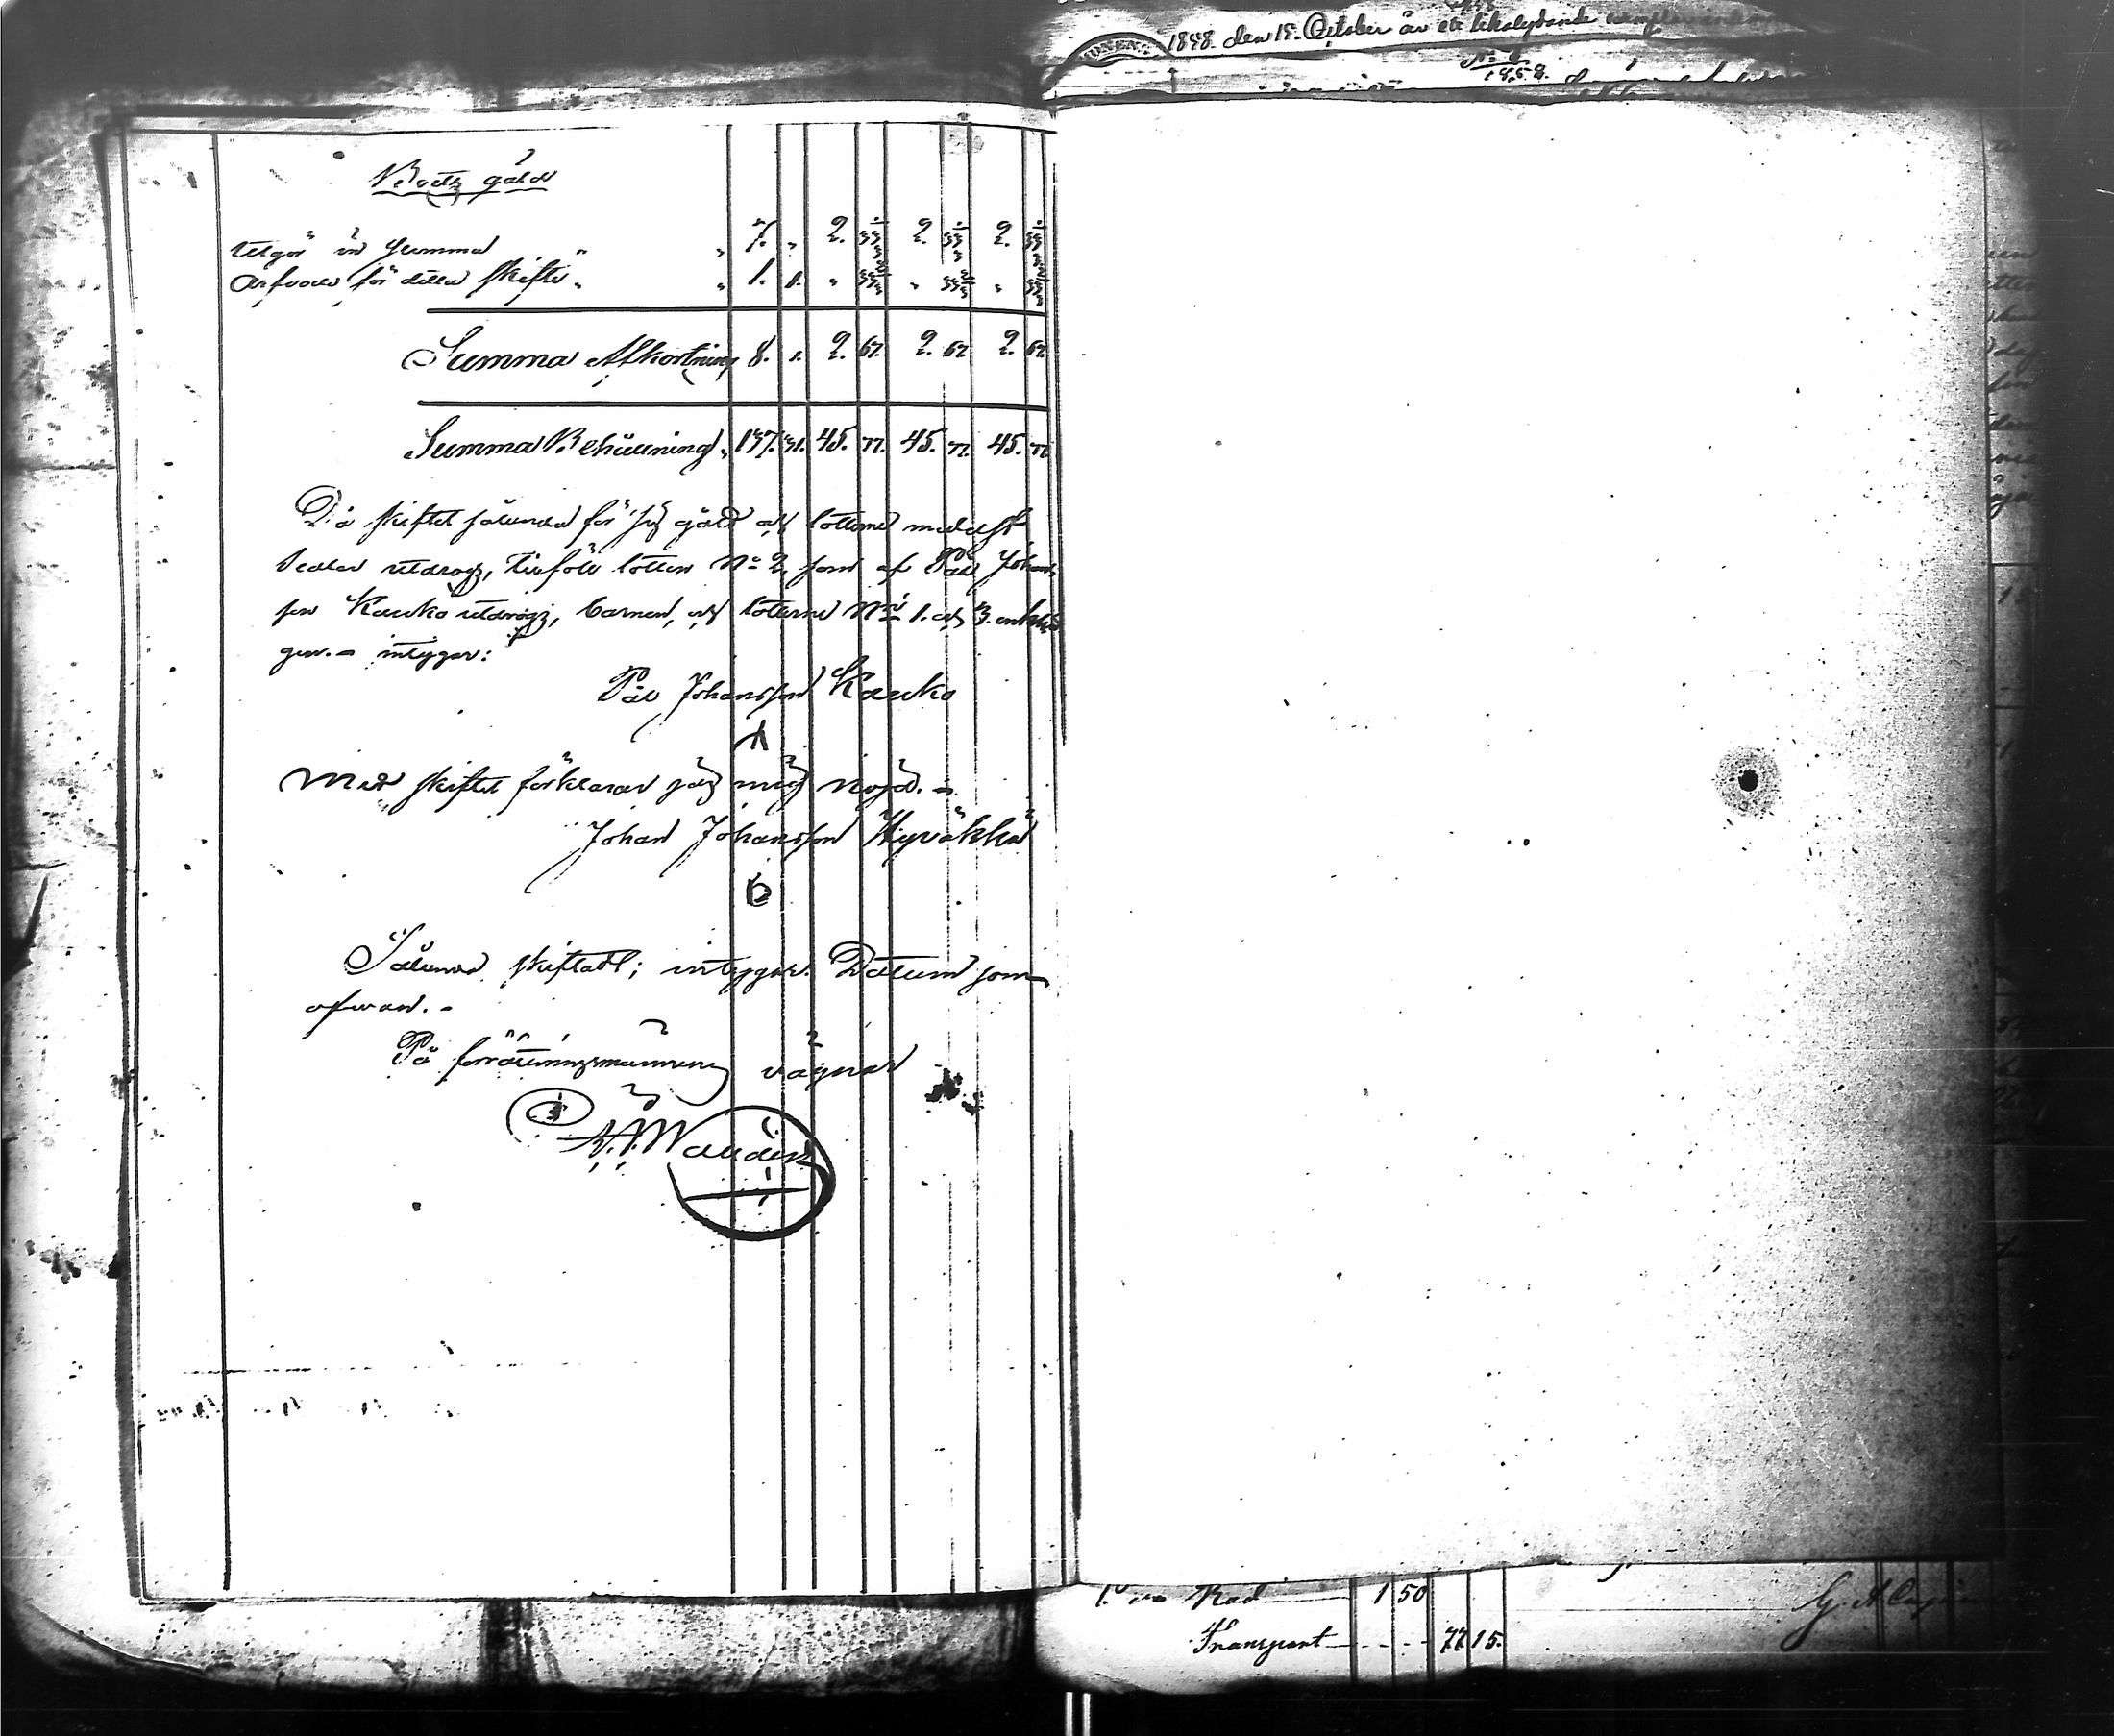 1848. den 15. October är ett likalydande
1858.
Boets gäld
utgör in Summa " " 7. " 2. 33⅓ 2. 33⅓ 2. 33⅓
Arfvode för detta skifte " " 1. " " 33⅓ " 33⅓ " 33⅓
Summa Afkortning 8. " 2. 67. 2. 67 2. 67
Summa Behållning " 137. 31. 45. 77. 45. 77. 45. 77
Då skiftet sålunda för sig gått och lotterne medelst
sedlar utdrogs, tillföll lotten No 2, som af Påhl Johans
son Kauko utdrogs, barnen, och lotterne No 1. och 3. enklin
gen. – intygar:
Påhl Johansson Kauko
Med skiftet förklarar jag mig nöjd. –
Johan Johansson Hyväkkä
Sålunda skiftadt; intygar. Datum som
ofvan. –
På förrättningsmännens vägnar
Rad 1 50
Transport – – – 77 15.